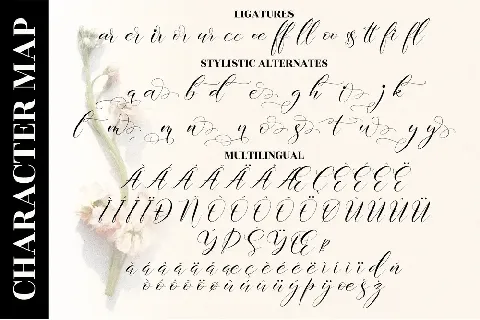 CHARACTER MAP
LIGATURES
ar er ir or ur cc oe ff ll ov ss tt fi fl
STYLISTIC ALTERNATES
q a b d e g h i j k
l m q n o s t u y y
MULTILINGUAL
À Á Â Ã Ä Å Æ Ç È É Ê Ë
Ì Í Î Ï Ð Ñ Ò Ó Ô Õ Ö Ø Ù Ú Û Ü
Ý Þ Š Ÿ Œ
à á â ã ä å æ ç è é ê ë ì í î ï ð ñ
ò ó ô õ ö ø ù ú û ü ý þ ÿ œ š ž